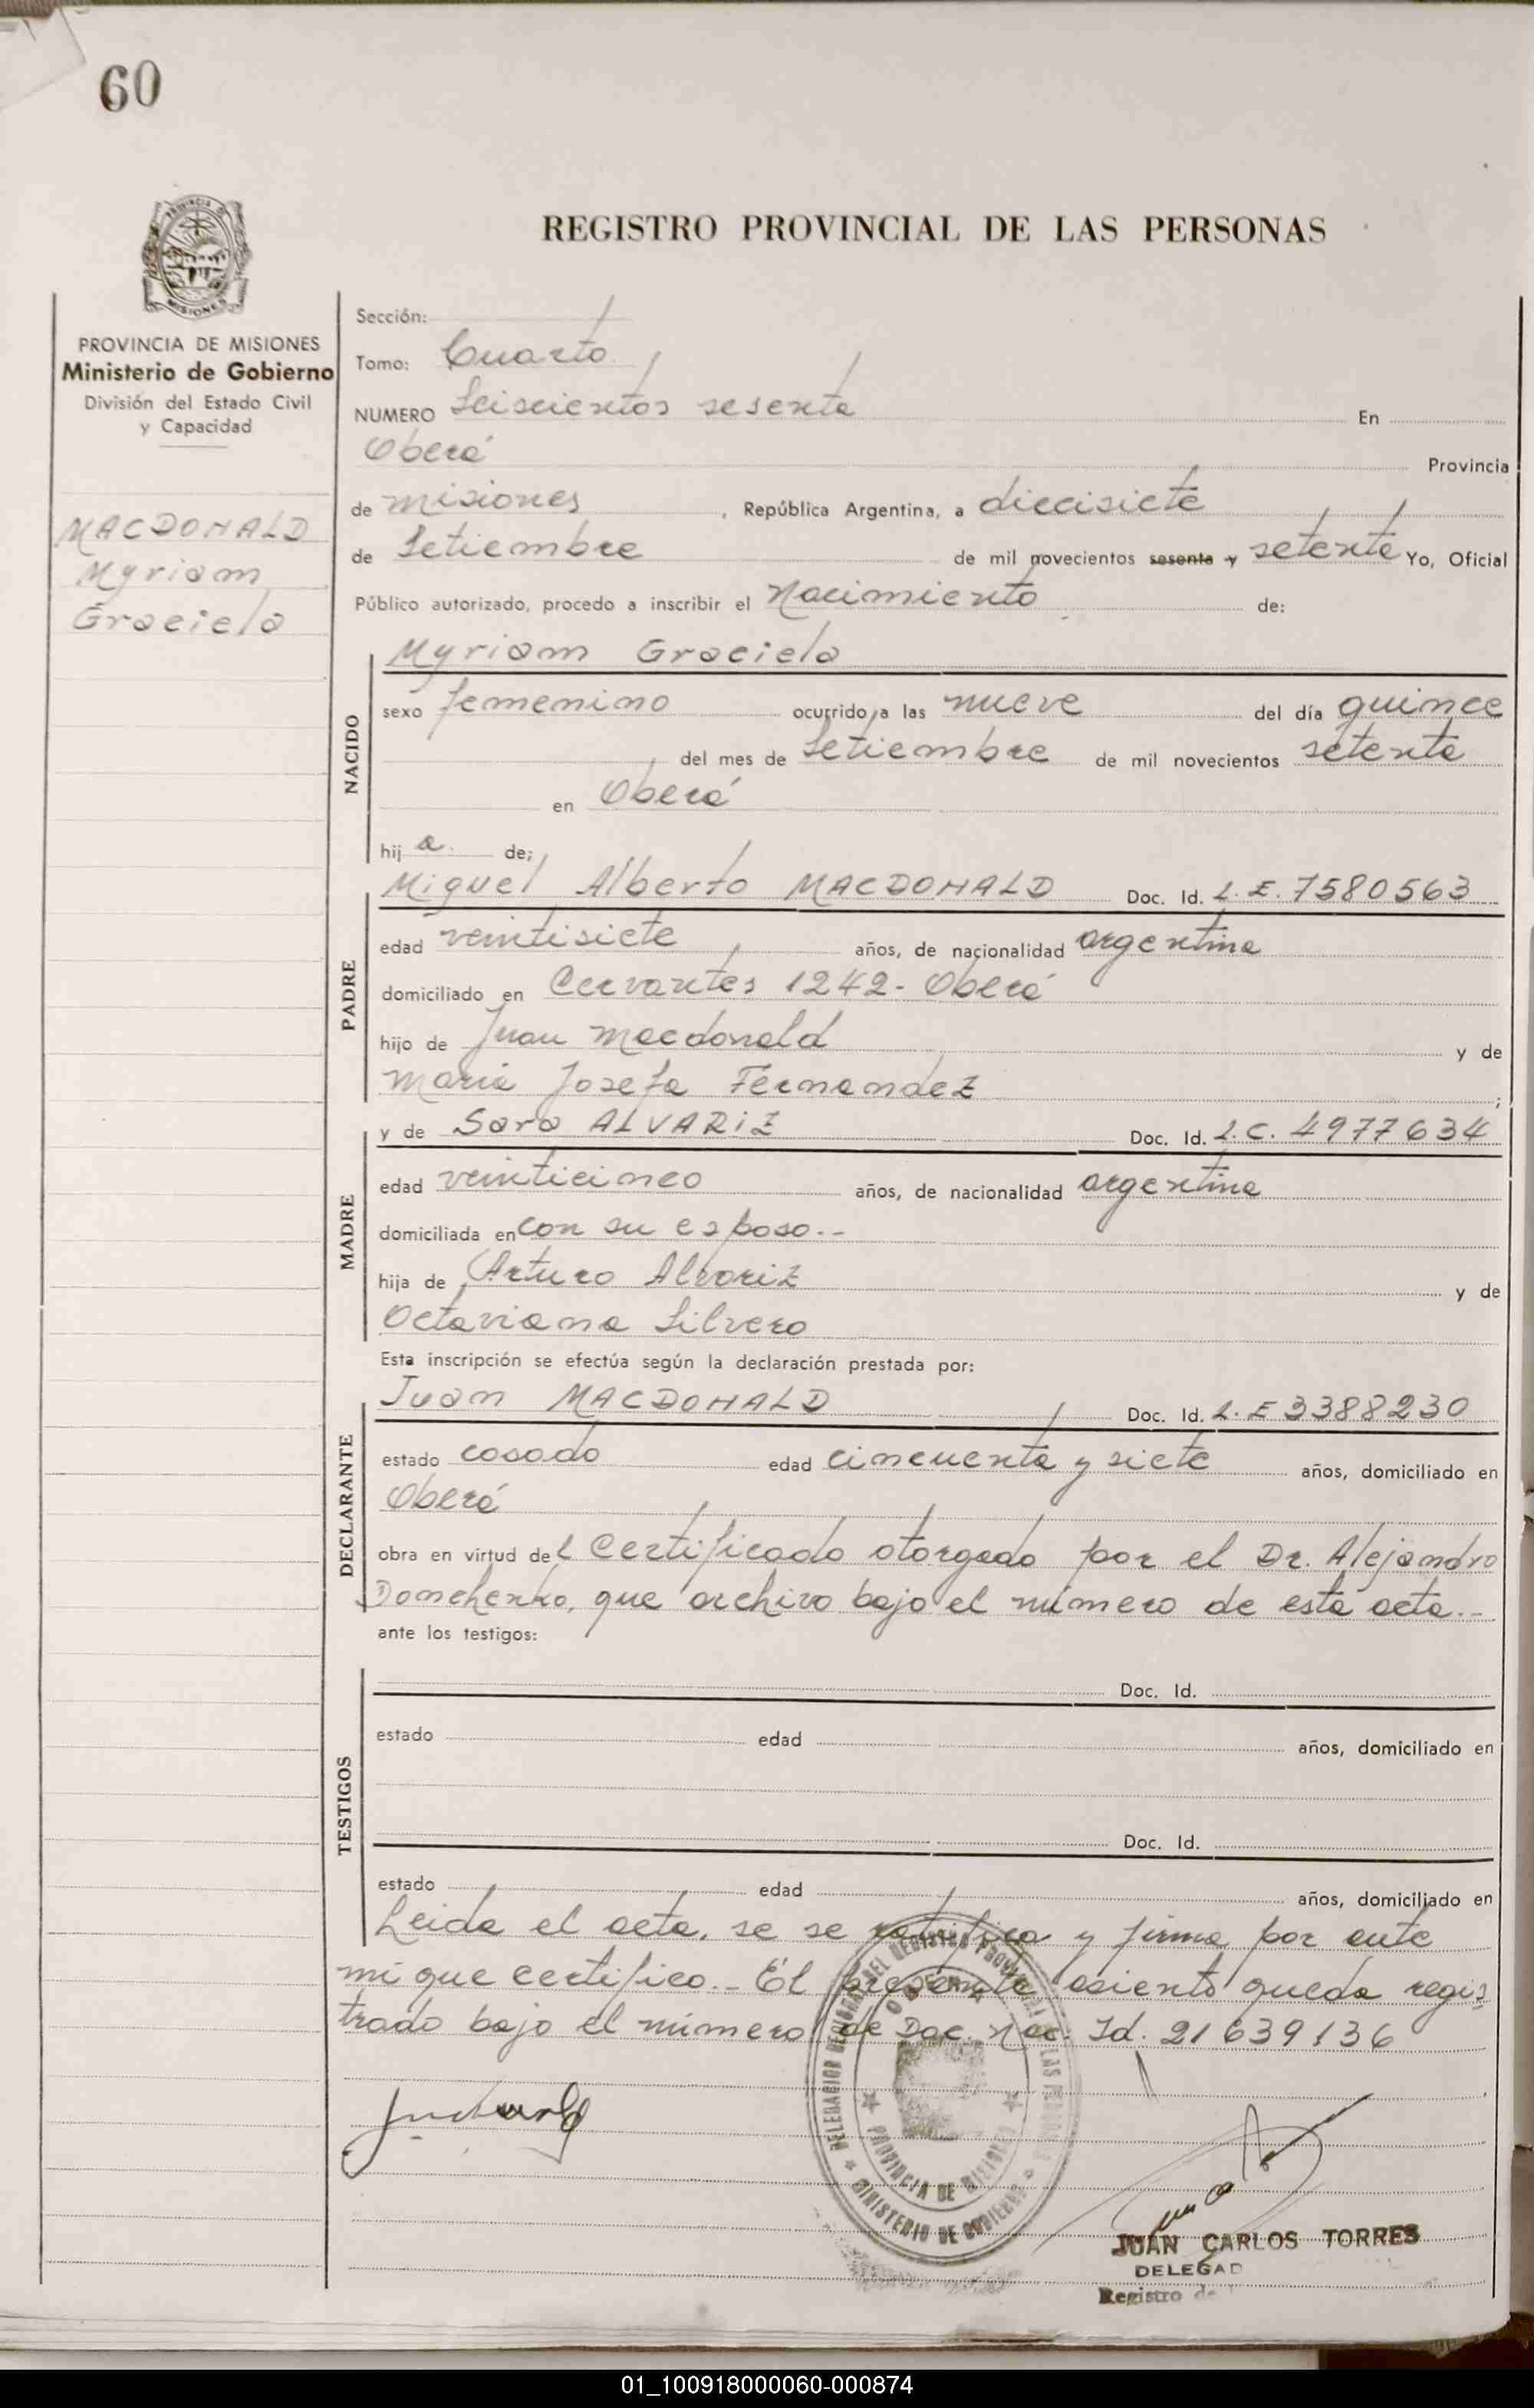 60
REGISTRO PROVINCIAL DE LAS PERSONAS
PROVINCIA DE MISIONES
Ministerio de Gobierno
División del Estado Civil
y Capacidad
MACDONALD
Myriam
Graciela
Sección:
Tomo: Cuarto
NUMERO Seiscientos sesenta En
Oberá Provincia
de Misiones, República Argentina, a diecisiete
de Setiembre de mil novecientos sesenta y setenta Yo, Oficial
Público autorizado, procedo a inscribir el Nacimiento de:
NACIDO
Myriam Graciela
sexo femenino ocurrido a las nueve del día quince
del mes de Setiembre de mil novecientos setenta
en Oberá
hij a de;
PADRE
Miguel Alberto MACDONALD Doc. Id. L.E. 7580563
edad veintisiete años, de nacionalidad argentina
domiciliado en Cervantes 1242- Oberá
hijo de Juan Macdonald y de
María Josefa Fernandez ;
MADRE
y de Sara ALVARiZ Doc. Id. L.C. 4977634
edad veinticinco años, de nacionalidad argentina
domiciliada en con su esposo.--
hija de Arturo Alvariz y de
Octaviana Silvero
Esta inscripción se efectúa según la declaración prestada por:
DECLARANTE
Juan MACDONALD Doc. Id. L.E 3388230
estado casado edad cincuenta y siete años, domiciliado en
Oberá
obra en virtud del Certificado otorgado por el Dr. Alejandro
Domchenko, que archivo bajo el número de esta acta.--
ante los testigos:
TESTIGOS
Doc. Id.
estado edad años, domiciliado en
Doc. Id.
estado edad años, domiciliado en
Leida el acta, se se ratifica y firma por ante
mí que certifico.- El presente asiento queda regis
trado bajo el número de Doc. Nac. Id. 21639136
DELEGACION REGIONAL DEL REGISTRO PROVINCIAL DE LAS PERSONAS
MINISTERIO DE GOBIERNO
PROVINCIA DE MISIONES
JUAN CARLOS TORRES
DELEGAD
Registro de
01_100918000060-000874